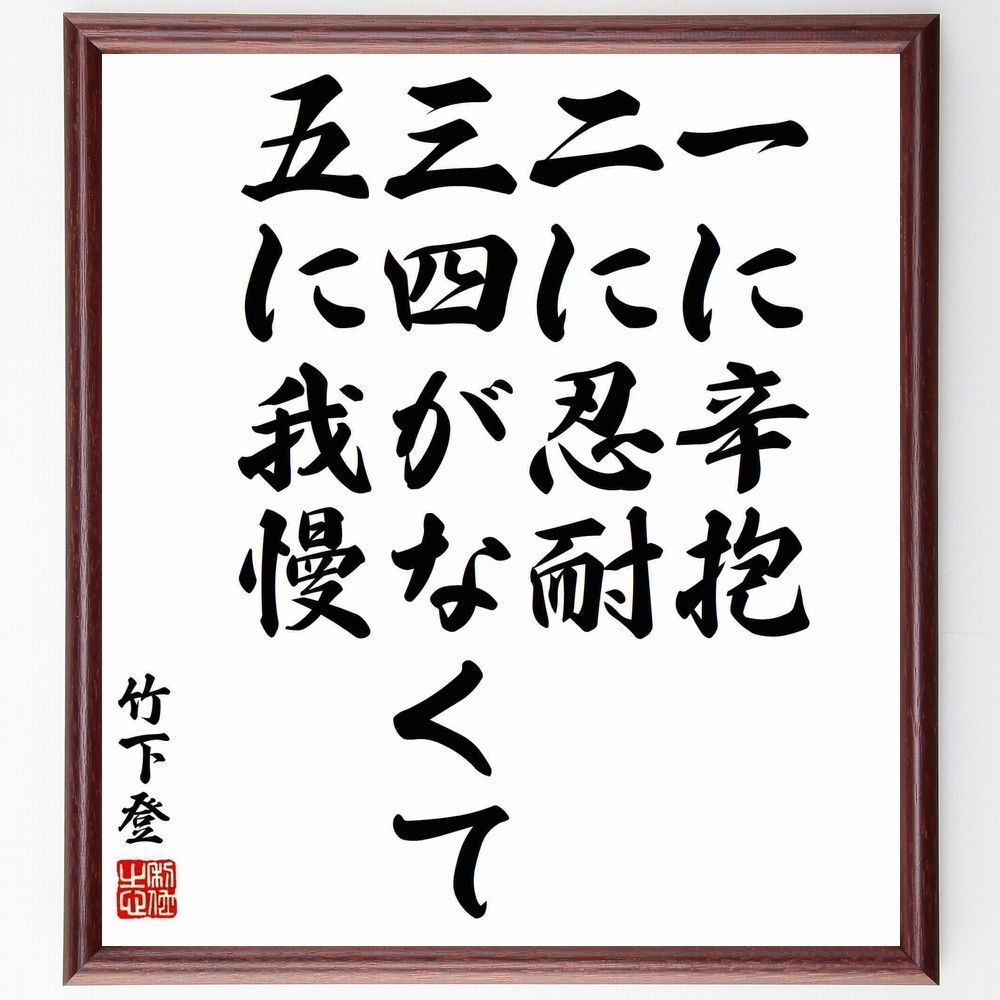 一に辛抱
二に忍耐
三四がなくて
五に我慢
竹下登